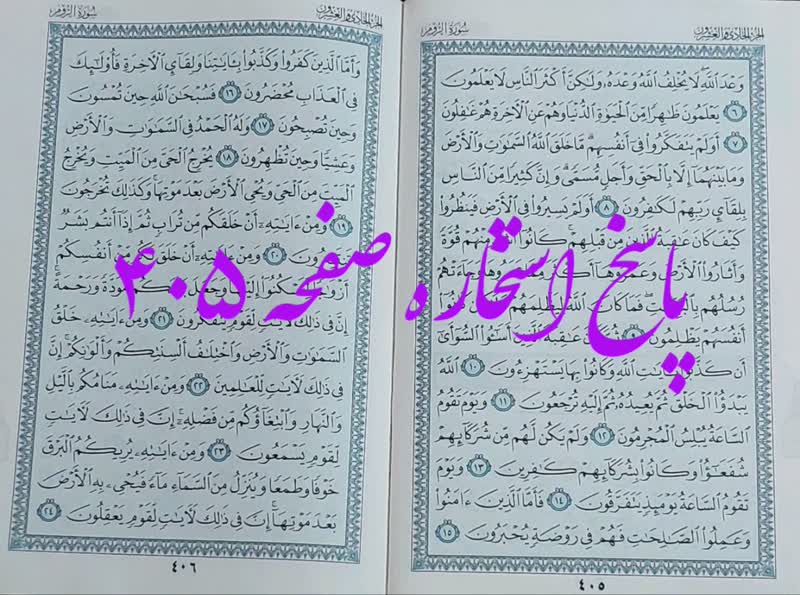 الجزء الحادي والعشرون
سورة الروم
وَعْدَ ٱللَّهِ لَا يُخْلِفُ ٱللَّهُ وَعْدَهُۥ وَلَٰكِنَّ أَكْثَرَ ٱلنَّاسِ لَا يَعْلَمُونَ
٦ يَعْلَمُونَ ظَٰهِرًا مِّنَ ٱلْحَيَوٰةِ ٱلدُّنْيَا وَهُمْ عَنِ ٱلْءَاخِرَةِ هُمْ غَٰفِلُونَ
٧ أَوَلَمْ يَتَفَكَّرُوا۟ فِىٓ أَنفُسِهِم مَّا خَلَقَ ٱللَّهُ ٱلسَّمَٰوَٰتِ وَٱلْأَرْضَ
وَمَا بَيْنَهُمَآ إِلَّا بِٱلْحَقِّ وَأَجَلٍ مُّسَمًّى وَإِنَّ كَثِيرًا مِّنَ ٱلنَّاسِ
بِلِقَآئِ رَبِّهِمْ لَكَٰفِرُونَ ٨ أَوَلَمْ يَسِيرُوا۟ فِى ٱلْأَرْضِ فَيَنظُرُوا۟
كَيْفَ كَانَ عَٰقِبَةُ ٱلَّذِينَ مِن قَبْلِهِمْ كَانُوٓا۟ أَشَدَّ مِنْهُمْ قُوَّةً
وَأَثَارُوا۟ ٱلْأَرْضَ وَعَمَرُوهَآ أَكْثَرَ مِمَّا عَمَرُوهَا وَجَآءَتْهُمْ
رُسُلُهُم بِٱلْبَيِّنَٰتِ فَمَا كَانَ ٱللَّهُ لِيَظْلِمَهُمْ وَلَٰكِن كَانُوٓا۟
أَنفُسَهُمْ يَظْلِمُونَ ٩ ثُمَّ كَانَ عَٰقِبَةَ ٱلَّذِينَ أَسَٰٓـُٔوا۟ ٱلسُّوٓأَىٰٓ
أَن كَذَّبُوا۟ بِـَٔايَٰتِ ٱللَّهِ وَكَانُوا۟ بِهَا يَسْتَهْزِءُونَ ١٠ ٱللَّهُ
يَبْدَؤُا۟ ٱلْخَلْقَ ثُمَّ يُعِيدُهُۥ ثُمَّ إِلَيْهِ تُرْجَعُونَ ١١ وَيَوْمَ تَقُومُ
ٱلسَّاعَةُ يُبْلِسُ ٱلْمُجْرِمُونَ ١٢ وَلَمْ يَكُن لَّهُم مِّن شُرَكَآئِهِمْ
شُفَعَٰٓؤُا۟ وَكَانُوا۟ بِشُرَكَآئِهِمْ كَٰفِرِينَ ١٣ وَيَوْمَ
تَقُومُ ٱلسَّاعَةُ يَوْمَئِذٍ يَتَفَرَّقُونَ ١٤ فَأَمَّا ٱلَّذِينَ ءَامَنُوا۟
وَعَمِلُوا۟ ٱلصَّٰلِحَٰتِ فَهُمْ فِى رَوْضَةٍ يُحْبَرُونَ ١٥
٤٠٥
الجزء الحادي والعشرون
سورة الروم
وَأَمَّا ٱلَّذِينَ كَفَرُوا۟ وَكَذَّبُوا۟ بِـَٔايَٰتِنَا وَلِقَآئِ ٱلْءَاخِرَةِ فَأُو۟لَٰٓئِكَ
فِى ٱلْعَذَابِ مُحْضَرُونَ ١٦ فَسُبْحَٰنَ ٱللَّهِ حِينَ تُمْسُونَ
وَحِينَ تُصْبِحُونَ ١٧ وَلَهُ ٱلْحَمْدُ فِى ٱلسَّمَٰوَٰتِ وَٱلْأَرْضِ
وَعَشِيًّا وَحِينَ تُظْهِرُونَ ١٨ يُخْرِجُ ٱلْحَىَّ مِنَ ٱلْمَيِّتِ وَيُخْرِجُ
ٱلْمَيِّتَ مِنَ ٱلْحَىِّ وَيُحْىِ ٱلْأَرْضَ بَعْدَ مَوْتِهَا وَكَذَٰلِكَ تُخْرَجُونَ
١٩ وَمِنْ ءَايَٰتِهِۦٓ أَنْ خَلَقَكُم مِّن تُرَابٍ ثُمَّ إِذَآ أَنتُم بَشَرٌ
تَنتَشِرُونَ ٢٠ وَمِنْ ءَايَٰتِهِۦٓ أَنْ خَلَقَ لَكُم مِّنْ أَنفُسِكُمْ
أَزْوَٰجًا لِّتَسْكُنُوٓا۟ إِلَيْهَا وَجَعَلَ بَيْنَكُم مَّوَدَّةً وَرَحْمَةً
إِنَّ فِى ذَٰلِكَ لَءَايَٰتٍ لِّقَوْمٍ يَتَفَكَّرُونَ ٢١ وَمِنْ ءَايَٰتِهِۦ خَلْقُ
ٱلسَّمَٰوَٰتِ وَٱلْأَرْضِ وَٱخْتِلَٰفُ أَلْسِنَتِكُمْ وَأَلْوَٰنِكُمْ إِنَّ
فِى ذَٰلِكَ لَءَايَٰتٍ لِّلْعَٰلِمِينَ ٢٢ وَمِنْ ءَايَٰتِهِۦ مَنَامُكُم بِٱلَّيْلِ
وَٱلنَّهَارِ وَٱبْتِغَآؤُكُم مِّن فَضْلِهِۦٓ إِنَّ فِى ذَٰلِكَ لَءَايَٰتٍ
لِّقَوْمٍ يَسْمَعُونَ ٢٣ وَمِنْ ءَايَٰتِهِۦ يُرِيكُمُ ٱلْبَرْقَ
خَوْفًا وَطَمَعًا وَيُنَزِّلُ مِنَ ٱلسَّمَآءِ مَآءً فَيُحْىِۦ بِهِ ٱلْأَرْضَ
بَعْدَ مَوْتِهَآ إِنَّ فِى ذَٰلِكَ لَءَايَٰتٍ لِّقَوْمٍ يَعْقِلُونَ ٢٤
٤٠٦
پاسخ استخاره صفحه ۴۰۵